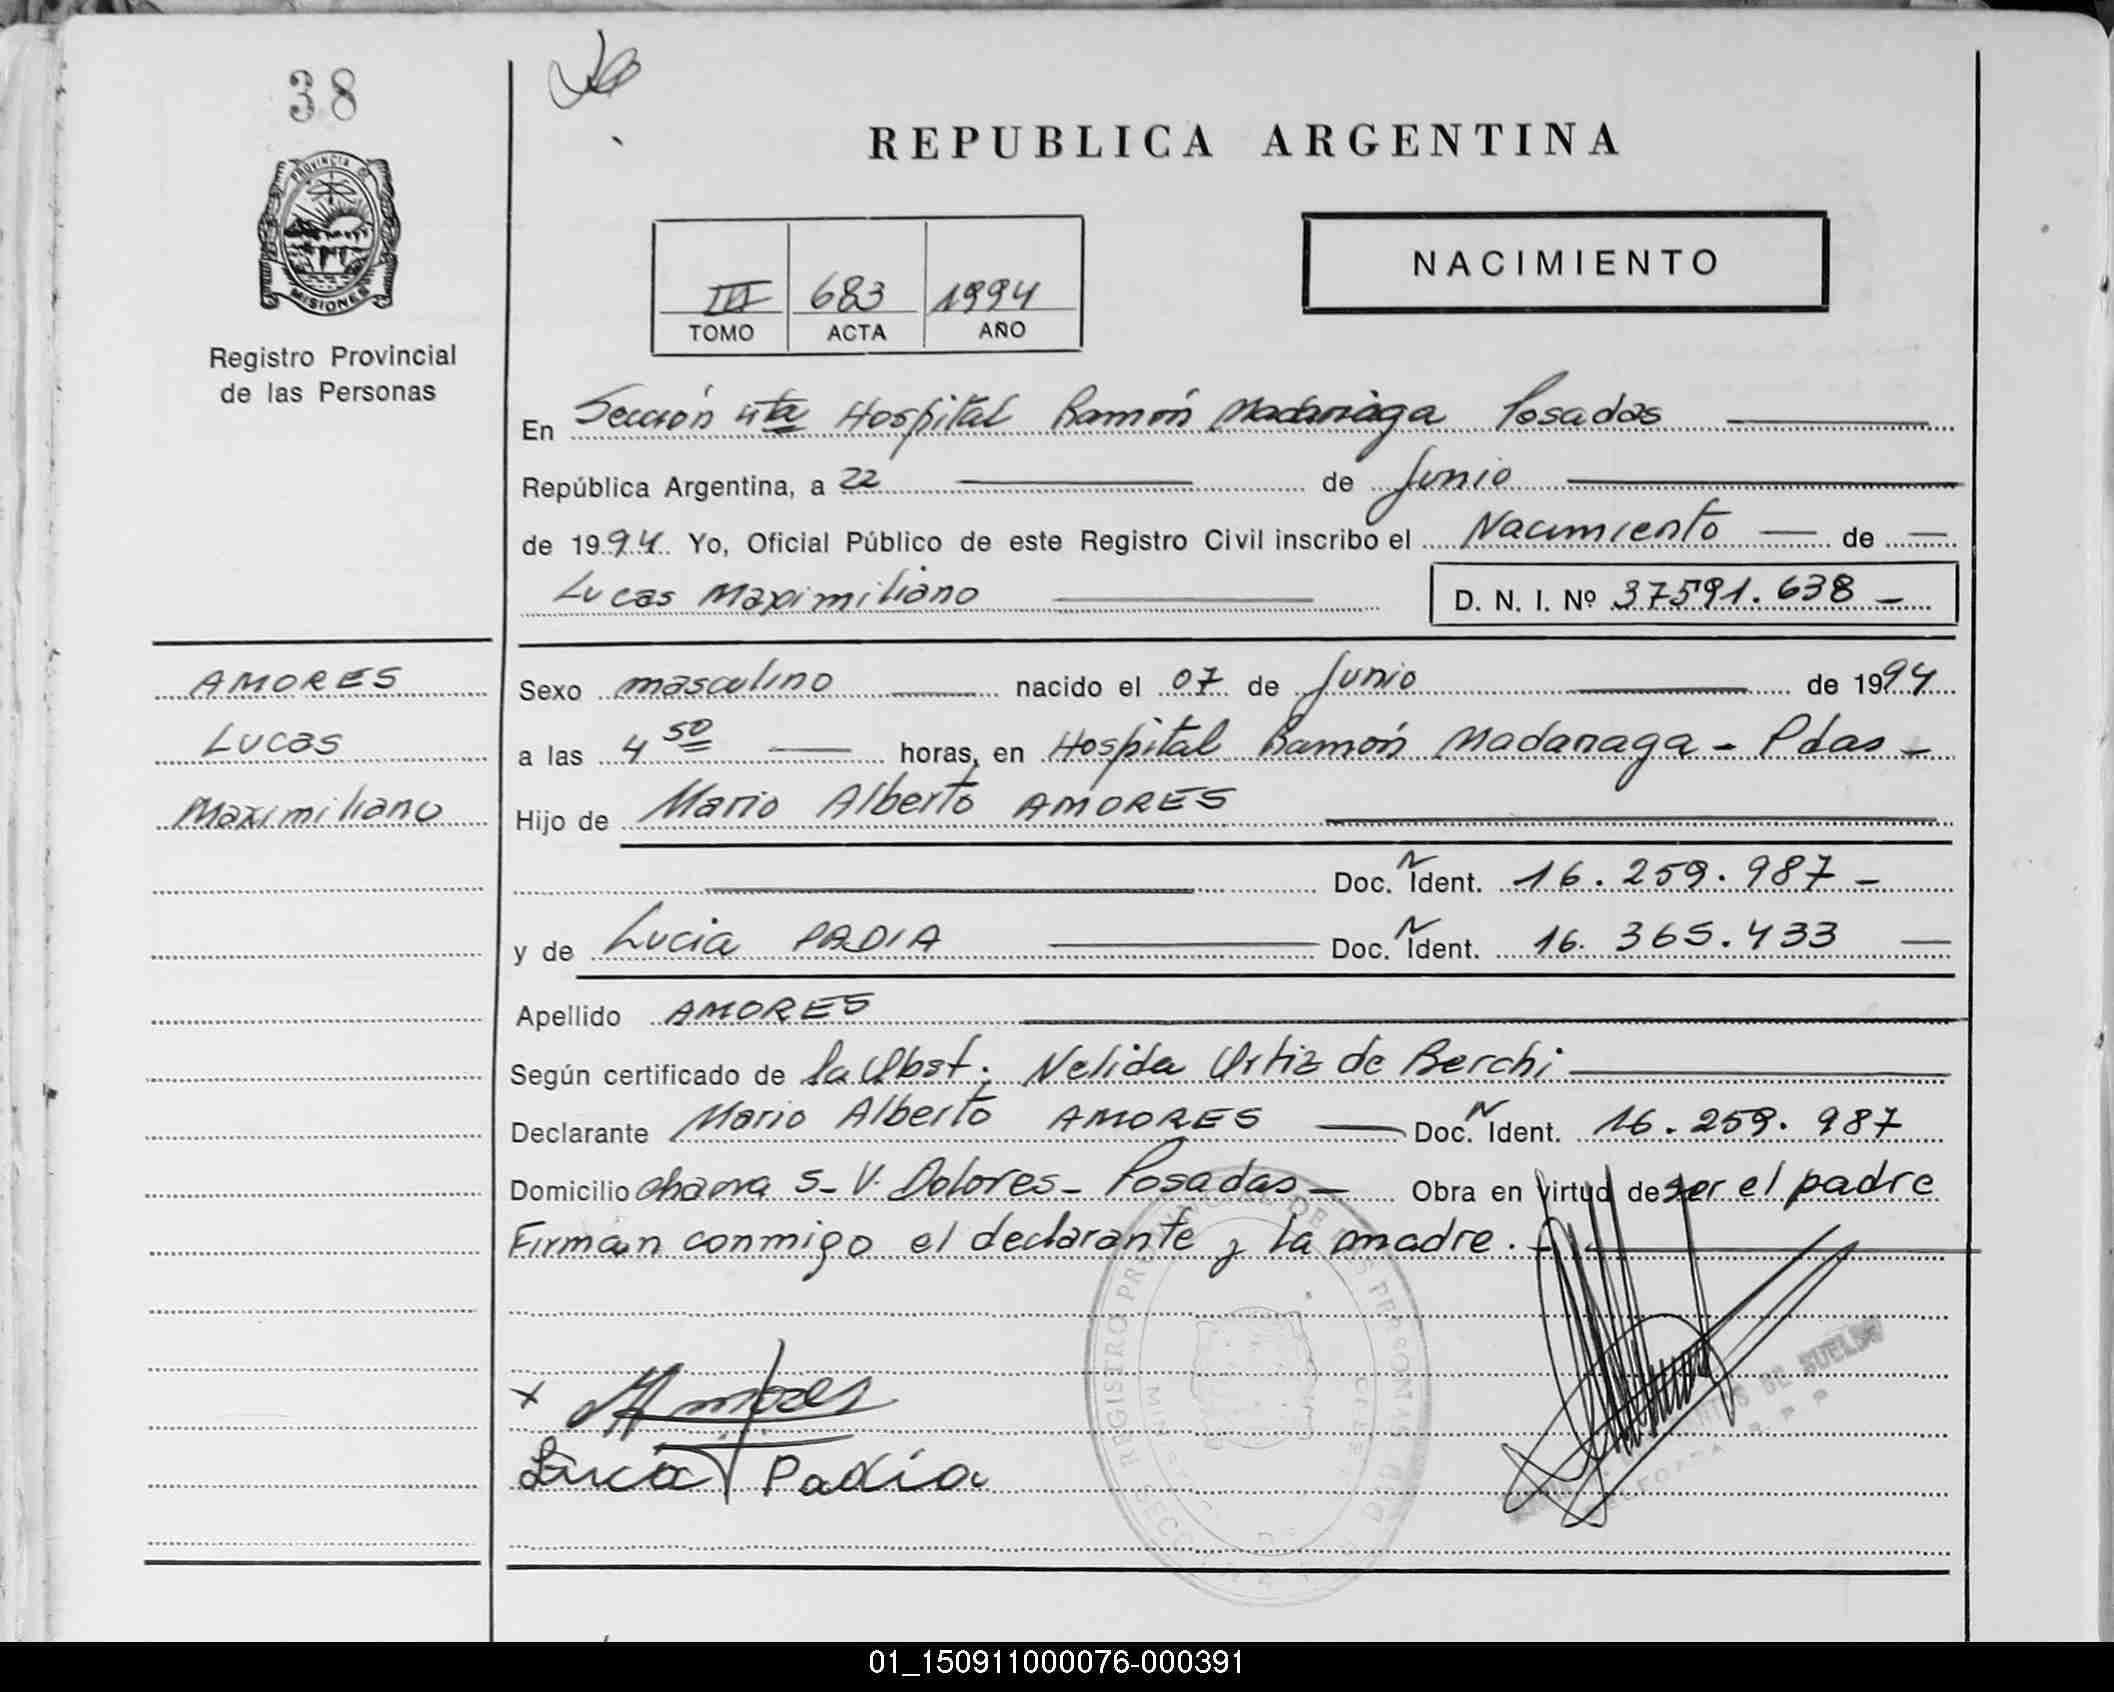 38
PROVINCIA
MISIONES
Registro Provincial
de las Personas
REPUBLICA ARGENTINA
NACIMIENTO
III 683 1994
TOMO ACTA AÑO
En Sección 4ta Hospital Ramón Madariaga Posadas
República Argentina, a 22 de Junio
de 1994 Yo, Oficial Público de este Registro Civil inscribo el Nacimiento de
Lucas Maximiliano D. N. I. Nº 37591.638
AMORES
Lucas
Maximiliano
Sexo masculino nacido el 07 de Junio de 1994
a las 4 50 horas, en Hospital Ramón Madariaga - Pdas -
Hijo de Mario Alberto AMORES
Doc. N Ident. 16.259.987 -
y de Lucia PADIA Doc. N Ident. 16.365.433
Apellido AMORES
Según certificado de la Obst. Nelida Ortiz de Berchi
Declarante Mario Alberto AMORES Doc. N Ident. 16.259.987
Domicilio chacra 5 - V. Dolores - Posadas - Obra en virtud de ser el padre
Firman conmigo el declarante y la madre.
x Amores
Lucia Padia
REGISTRO PROVINCIAL DE LAS PERSONAS
DE SUELDO
01_150911000076-000391